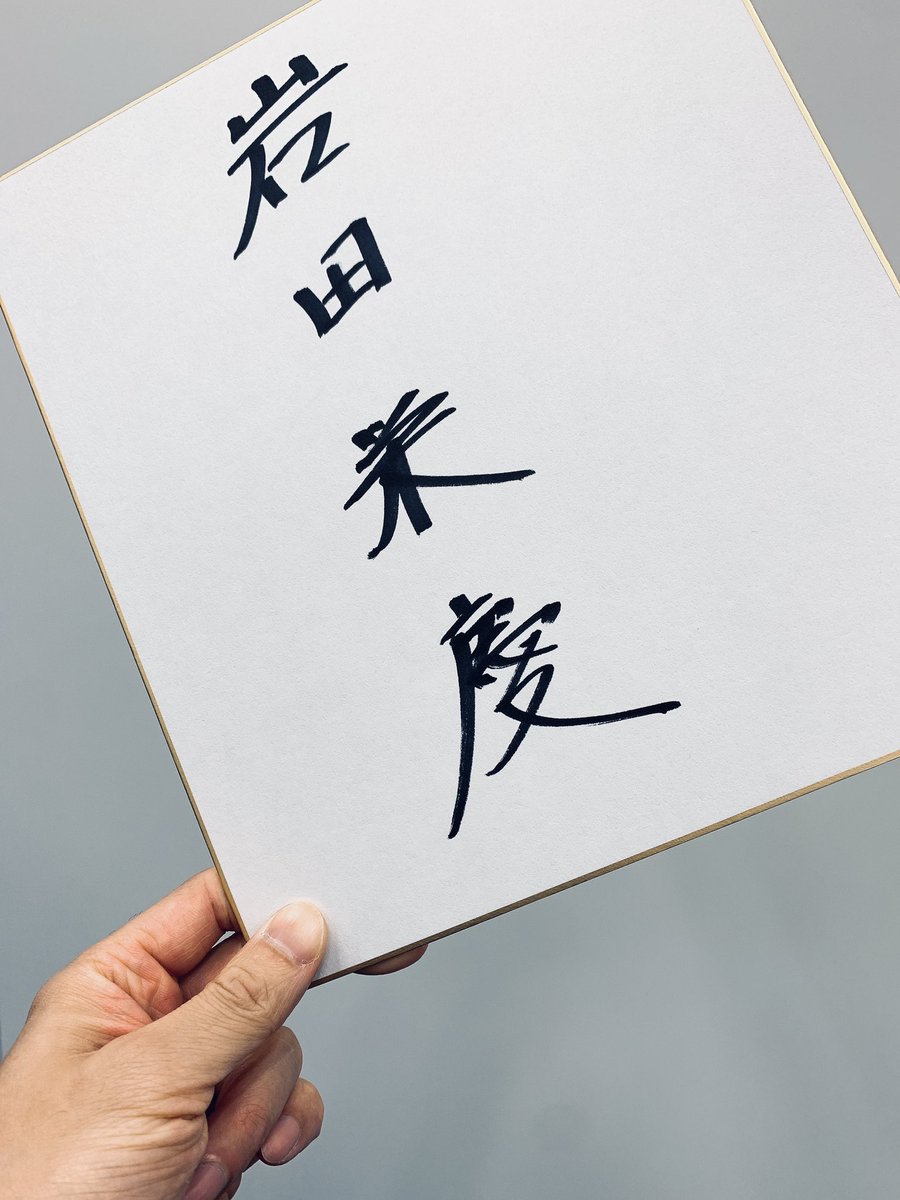 岩田栄慶